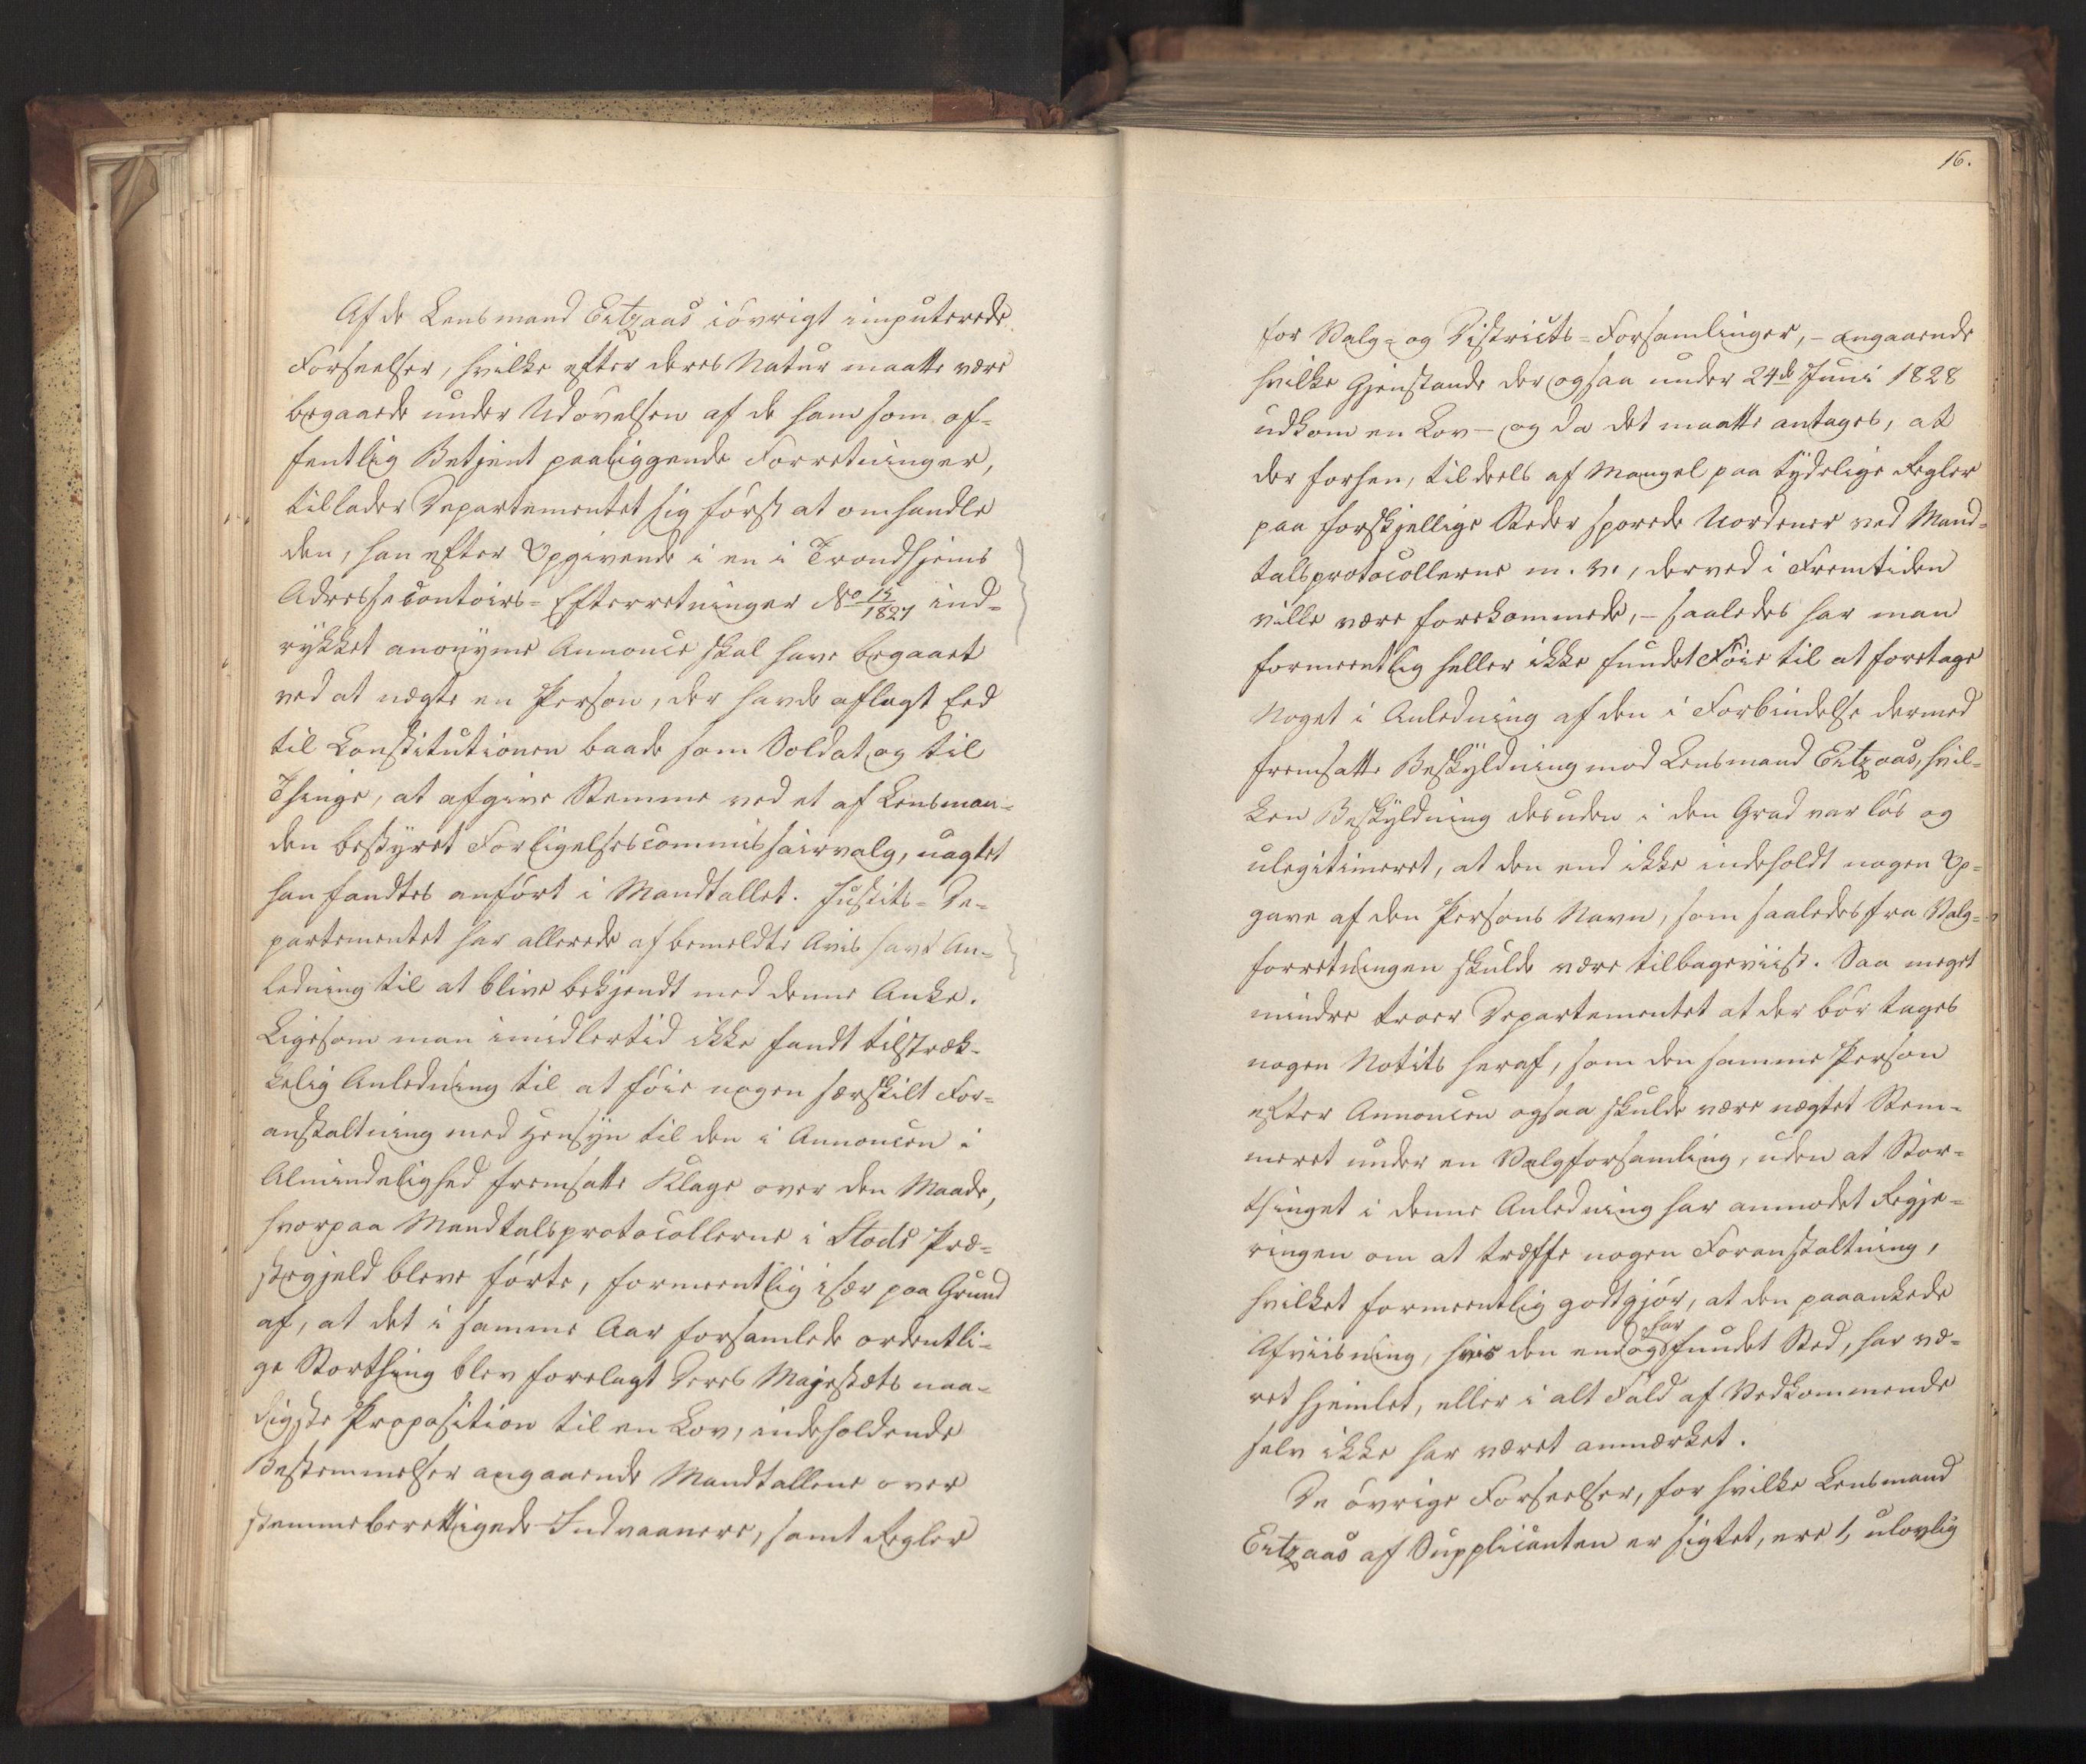 Af de Lensmand Eitzaas iøvrigt imputerede
Forseelser, hvilke efter deres Natur maatte være
begaaede under Udøvelsen af de ham som of-
fentlig Betjent paaliggende Forretninger,
tillader Departementet sig først at omhandle
den, han efter Opgivende i en i Trondhjems
Adressecontoirs-Efterretninger No 15/1827 ind-
rykket anonyme Annonce skal have begaaet
ved at nægte en Person, der havde aflagt Eed
til Constitutionen baade som Soldat og til
Thinge, at afgive Stemme ved et af Lensman-
den bestyret Forligelsescommissairvalg, uagtet
han fandtes anført i Mandtallet. Justits-De-
partementet har allerede af bemeldte Avis havt An-
ledning til at blive bekjendt med denne Anke.
Ligesom man imidlertid ikke fandt tilstræk-
kelig Anledning til at føie nogen særskilt For-
anstaltning med Hensyn til den i Annoncen i
Almindelighed fremsatte Klage over den Maade,
hvorpaa Mandtalsprotocollerne i Stods Præ-
stegjeld bleve førte, formeentlig især paa Grund
af, at det i samme Aar forsamlede ordentli-
ge Storthing blev forelagt Deres Majestæts naa-
digste Proposition til en Lov, indeholdende
Bestemmelser angaaende Mandtallene over
stemmeberettigede Indvaanere, samt Regler
16.
for Valg- og Districts-Forsamlinger, - angaaende
hvilke Gjenstande der ogsaa under 24de Juni 1828
udkom en Lov - og da det maatte antages, at
der forhen, tildeels af Mangel paa tydelige Regler
paa forskjellige Steder sporede Uordener ved Mand-
talsprotocollerne m. v., derved i Fremtiden
ville være forekommede, - saaledes har man
formeentlig heller ikke fundet Føie til at foretage
Noget i Anledning af den i Forbindelse dermed
fremsatte Beskyldning mod Lensmand Eitzaas, hvil-
ken Beskyldning desuden i den Grad var løs og
ulegitimeret, at den end ikke indeholdt nogen Op-
gave af den Persons Navn, som saaledes fra Valg-
forretningen skulde være tilbageviist. Saa meget
mindre troer Departementet at der bør tages
nogen Notits heraf, som den samme Person
efter Annoncen ogsaa skulde være nægtet Stem-
meret under en Valgforsamling, uden at Stor-
thinget i denne Anledning har anmodet Regje-
ringen om at træffe nogen Foranstaltning,
hvilket formeentlig godtgjør, at den paaankede
Afviisning, hvis den endog har fundet Sted, har væ-
ret hjemlet, eller i alt Fald af Vedkommende
selv ikke har været anmærket.
De øvrige Forseelser, for hvilke Lensmand
Eitzaas af Supplicanten er sigtet, ere 1, ulovlig